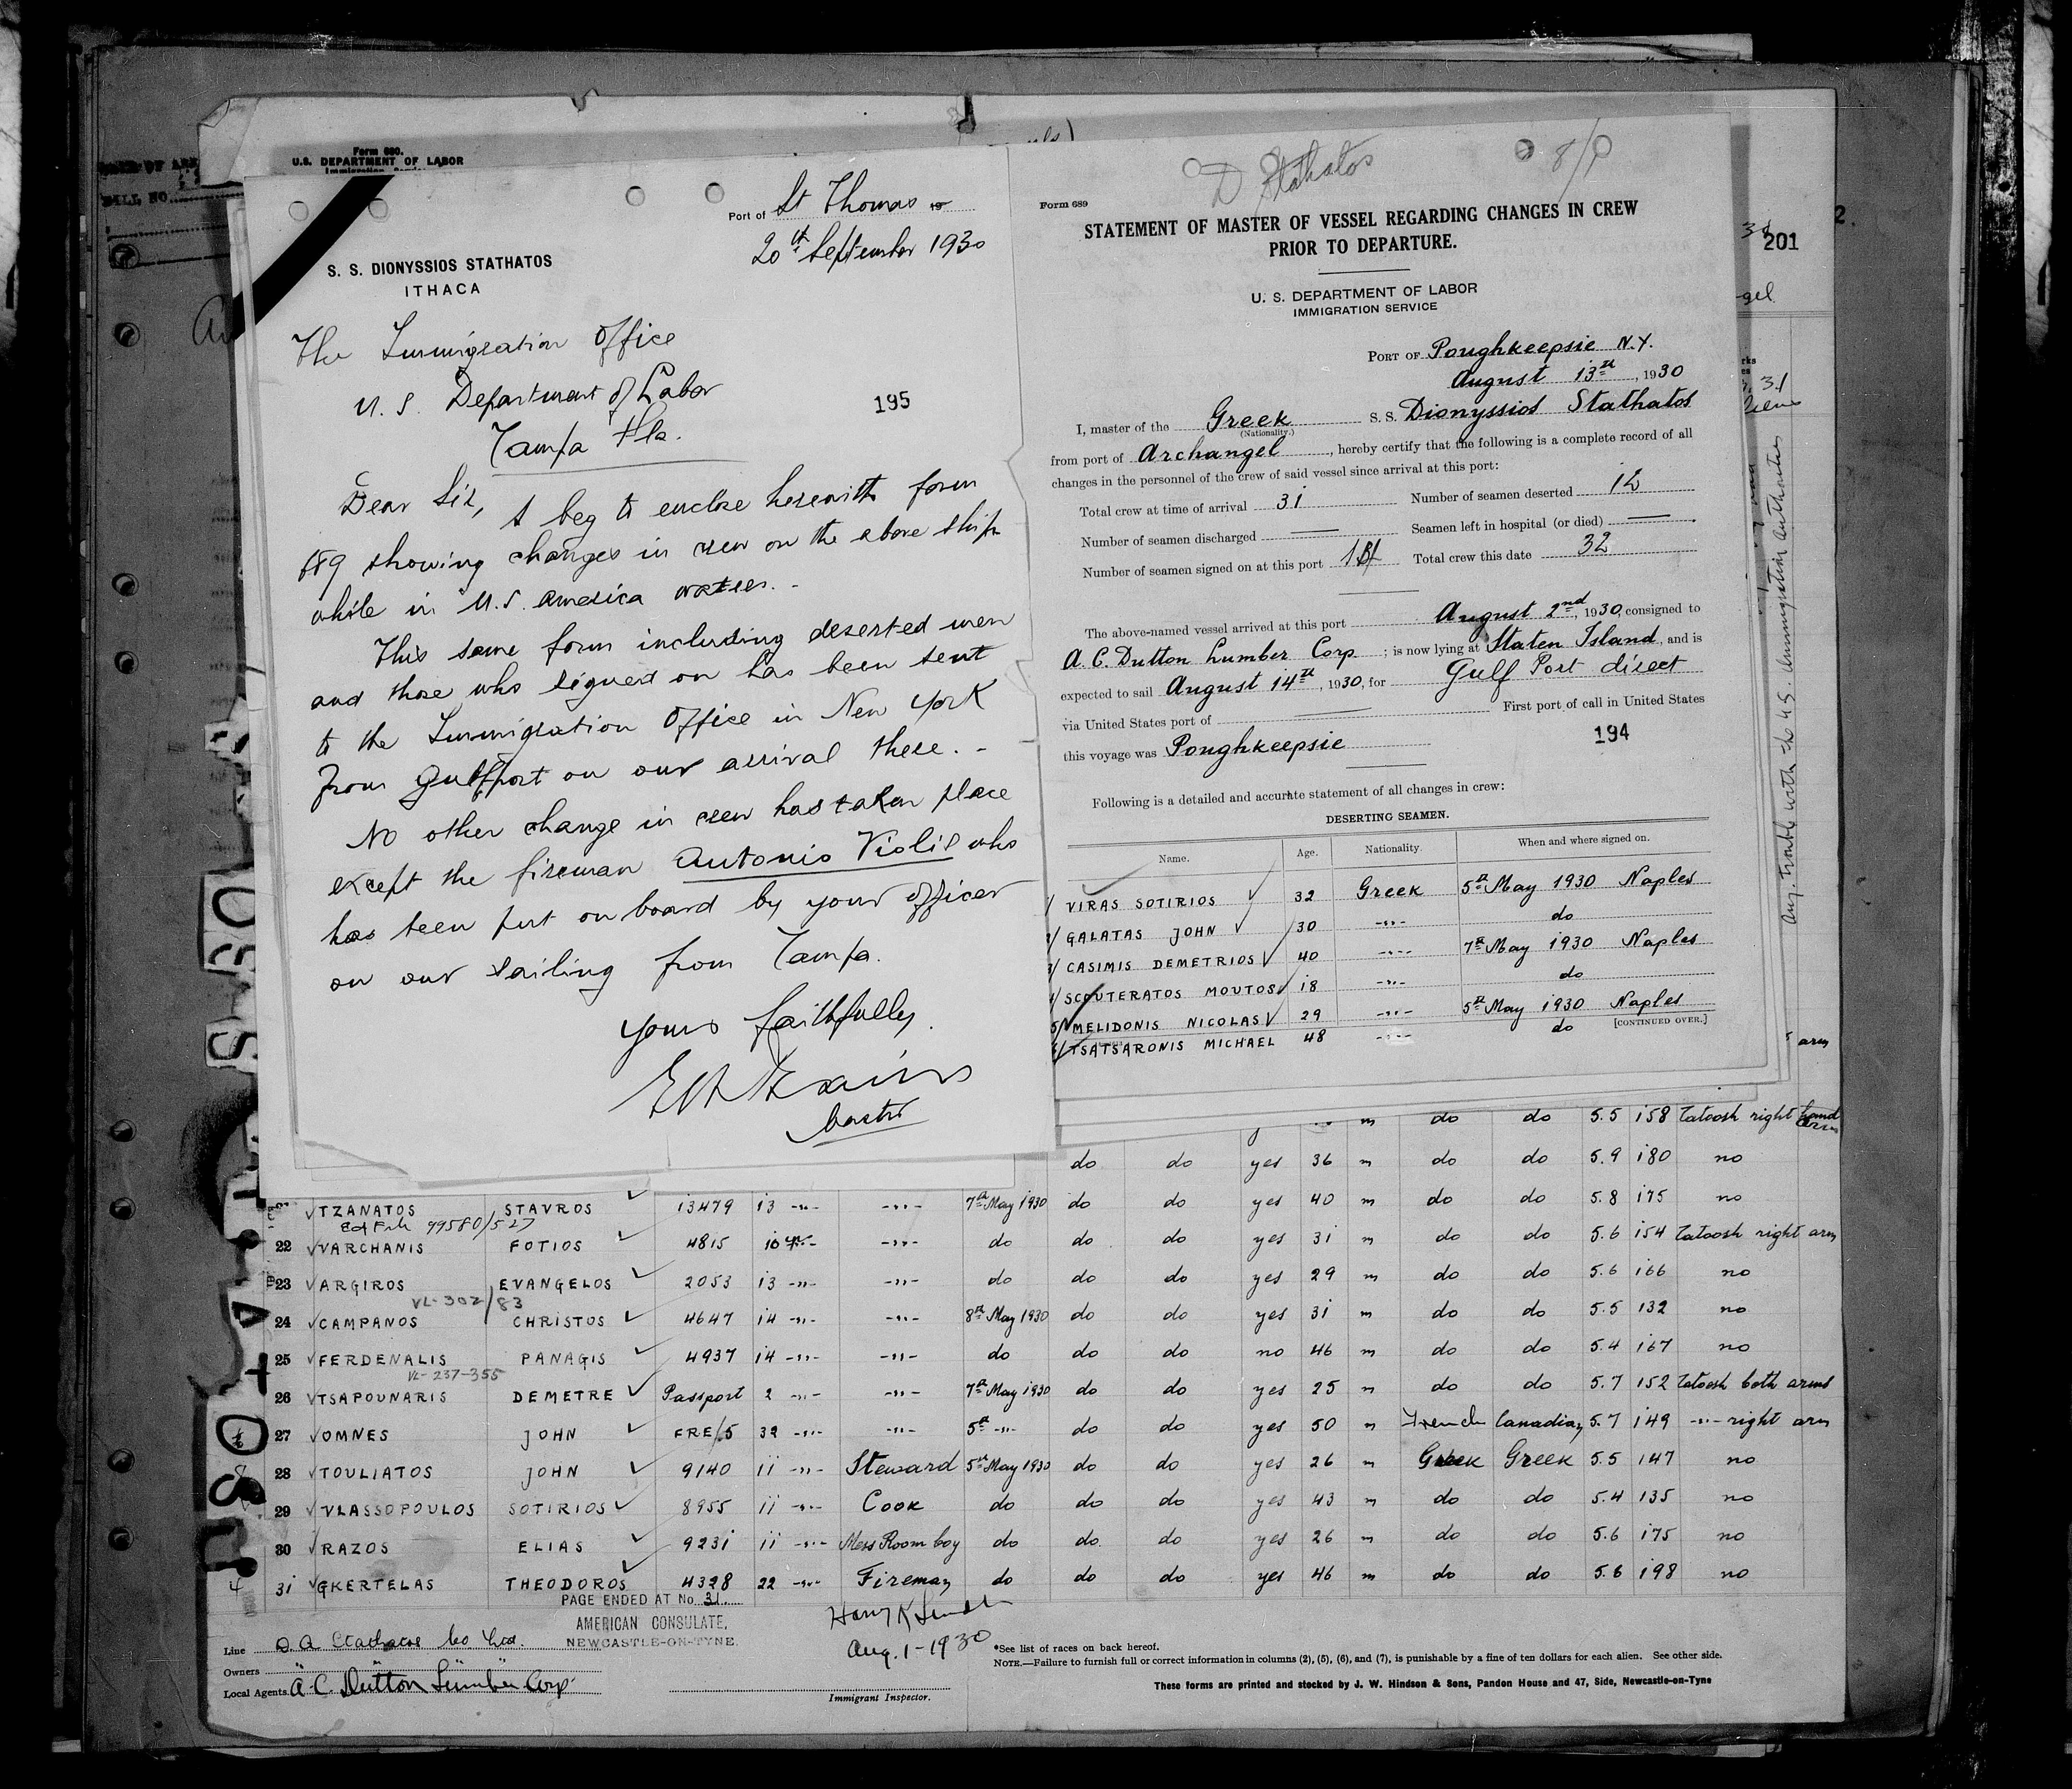 Form 680.
U.S. DEPARTMENT OF LABOR
BILL NO.
Port of St Thomas 19
20th September 1930
S. S. DIONYSSIOS STATHATOS
ITHACA
The Immigration Office
U. S. Department of Labor
Tampa Fla.
195
Dear Sir, I beg to enclose herewith form
689 showing changes in crew on the above ship
while in U.S. America water. -
This same form including deserted men
and those who signed on has been sent
to the Immigration Office in New York
from Gulfport on our arrival there. -
No other change in crew has taken place
except the fireman Antonio Violis who
has been put on board by your officer
on our sailing from Tampa.
Yours faithfully
Master
D Stathatos
Form 689
STATEMENT OF MASTER OF VESSEL REGARDING CHANGES IN CREW
PRIOR TO DEPARTURE.
U. S. DEPARTMENT OF LABOR
IMMIGRATION SERVICE
PORT OF Poughkeepsie N.Y.
August 13th, 1930
I, master of the Greek S. S. Dionyssios Stathatos
(Nationality.)
from port of Archangel, hereby certify that the following is a complete record of all
changes in the personnel of the crew of said vessel since arrival at this port:
Total crew at time of arrival 31 Number of seamen deserted 12
Number of seamen discharged — Seamen left in hospital (or died) —
Number of seamen signed on at this port Total crew this date 32
The above-named vessel arrived at this port August 2nd, 1930, consigned to
A. C. Dutton Lumber Corp; is now lying at Staten Island, and is
expected to sail August 14th, 1930, for Gulf Port direct
via United States port of — First port of call in United States
this voyage was Poughkeepsie
194
Following is a detailed and accurate statement of all changes in crew:
DESERTING SEAMEN.
Name. Age. Nationality. When and where signed on.
1/ VIRAS SOTIRIOS 32 Greek 5th May 1930 Naples
2/ GALATAS JOHN 30 -"- do
3/ CASIMIS DEMETRIOS 40 -"- 7th May 1930 Naples
4/ SCOUTERATOS MOUTOS 18 -"- do
5/ MELIDONIS NICOLAS 29 -"- 5th May 1930 Naples
[CONTINUED OVER.]
6/ TSATSARONIS MICHAEL 48 -"- do
201
arm
m do do 5.5 158 Tatoosh right hand arm
do do yes 36 m do do 5.9 180 no
TZANATOS STAVROS 13479 13 -"- -"- 7th May 1930 do do yes 40 m do do 5.8 175 no
99580/527
22 VARCHANIS FOTIOS 4815 10 -"- -"- do do do yes 31 m do do 5.6 154 Tatoosh right arm
23 ARGIROS EVANGELOS 2053 13 -"- -"- do do do yes 29 m do do 5.6 166 no
VL-302/83
24 CAMPANOS CHRISTOS 4647 14 -"- -"- 8th May 1930 do do yes 31 m do do 5.5 132 no
25 FERDENALIS PANAGIS 4937 14 -"- -"- do do do no 46 m do do 5.4 167 no
VL-237-355
26 TSAPOUNARIS DEMETRE Passport 2 -"- -"- 7th May 1930 do do yes 25 m do do 5.7 152 Tatoosh both arms
27 OMNES JOHN FRE/5 32 -"- -"- 5th -"- do do yes 50 m French Canadian 5.7 149 -"- right arm
28 TOULIATOS JOHN 9140 11 -"- Steward 5th May 1930 do do yes 26 m Greek Greek 5.5 147 no
29 VLASSOPOULOS SOTIRIOS 8955 11 -"- Cook do do do yes 43 m do do 5.4 135 no
30 RAZOS ELIAS 9231 11 -"- Mess Room boy do do do yes 26 m do do 5.6 175 no
31 GKERTELAS THEODOROS 4328 22 -"- Fireman do do do yes 46 m do do 5.6 198 no
PAGE ENDED AT No 31.
AMERICAN CONSULATE,
NEWCASTLE-ON-TYNE.
Aug. 1-1930
Immigrant Inspector.
Line
Owners
Local Agents. A. C. Dutton Lumber Corp
*See list of races on back hereof.
NOTE.—Failure to furnish full or correct information in columns (2), (5), (6), and (7), is punishable by a fine of ten dollars for each alien. See other side.
These forms are printed and stocked by J. W. Hindson & Sons, Pandon House and 47, Side, Newcastle-on-Tyne